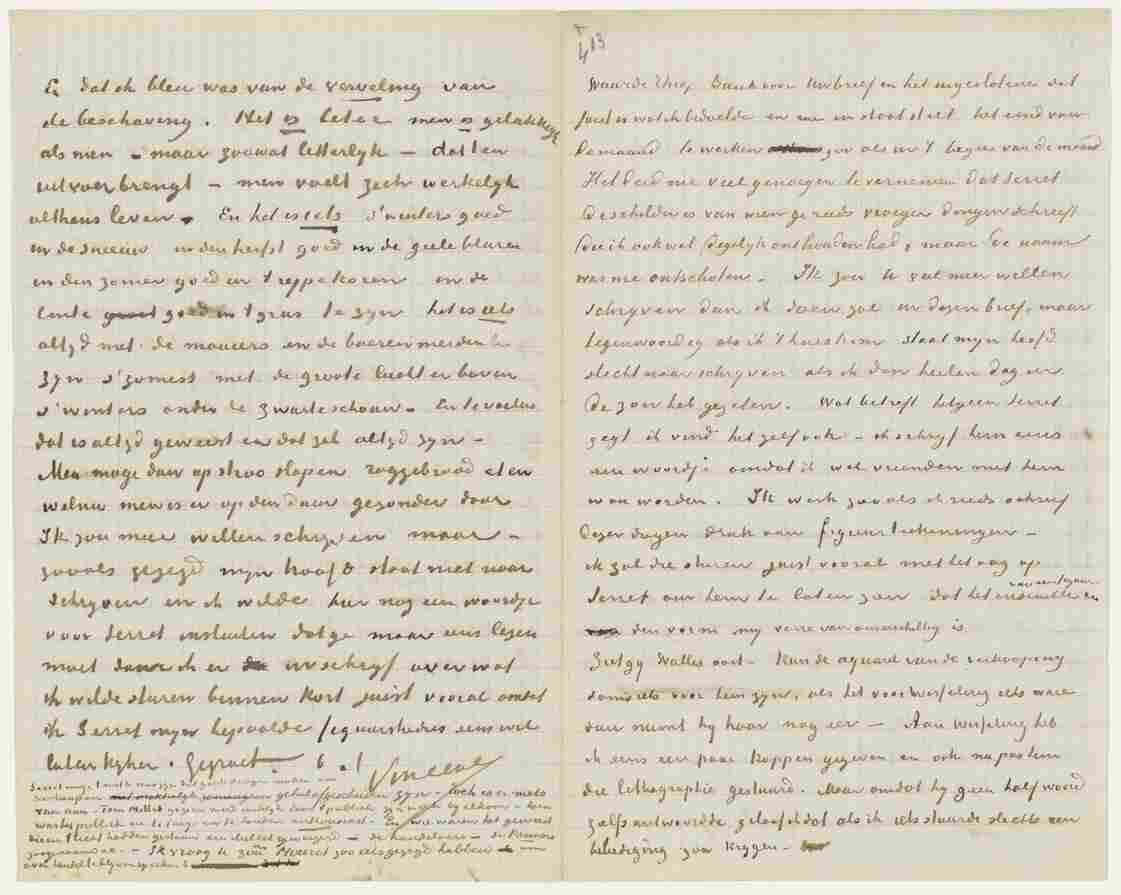 En dat ik bleu was van de verveling van
de beschaving. Het is beter men is gelukkiger
als men - maar zoowat letterlyk - dat ten
uitvoer brengt - men voelt zich werkelyk
althans leven. En het is iets s'winters goed
in de sneeuw in den herfst goed in de geele blaren
in den zomer goed in 't rype koren in de
lente goed in 't gras te zyn het is iets
altyd met de maaiers en de boerenmeiden te
zyn s'zomers met de groote lucht er boven
s'winters onder de zwarte schouw. En te voelen
dat is altyd geweest en dat zal altyd zyn -
Men moge dan op stroo slapen roggebrood eten
welnu men is er op den duur gezonder door
Ik zou meer willen schryven maar -
zooals gezegd myn hoofd staat niet naar
schryven en ik wilde hier nog een woordje
voor Serret insluiten dat ge maar eens lezen
moet daar ik er in schryf over wat
ik wilde sturen binnen kort juist vooral omdat
ik Serret myn bepaalde figuurstudies eens wil
laten kyken. Gegroet
Vincent
Waarde Theo, Dank voor Uw brief en het ingeslotene dat
juist is wat ik bedoelde en me in staat stelt het eind van
de maand te werken zoo als in 't begin van de maand
Het deed me veel genoegen te vernemen dat Serret
de schilder is van wien ge reeds vroeger dingen schreeft
die ik ook wel degelyk onthouden had, maar de naam
was me ontschoten. Ik zou U veel meer willen
schryven dan ik doen zal in dezen brief, maar
tegenwoordig als ik 't huis kom staat myn hoofd
slecht naar schryven als ik den heelen dag in
de zon heb gezeten. Wat betreft hetgeen Serret
zegt ik vind het zelf ook - ik schryf hem eens
een woordje omdat ik wel vrienden met hem
wou worden. Ik werk zooals ik reeds schreef
dezer dagen druk aan figuurteekeningen -
ik zal die sturen juist vooral met het oog op
Serret om hem te laten zien dat het ensemble en
van een figuur
den vorm my verre van onverschillig is
Ziet gy Wallis ooit - Kan de aquarel van de verkooping
soms iets voor hem zyn, als het voor Wisselingh iets ware
dan moest hy haar nog eer - Aan Wisselingh heb
ik eens een paar koppen gegeven en ook nu pas hem
die lithographie gestuurd. Maar omdat hy geen half woord
zelfs antwoordde geloof ik dat als ik iets stuurde slechts een
beleediging zou krygen -